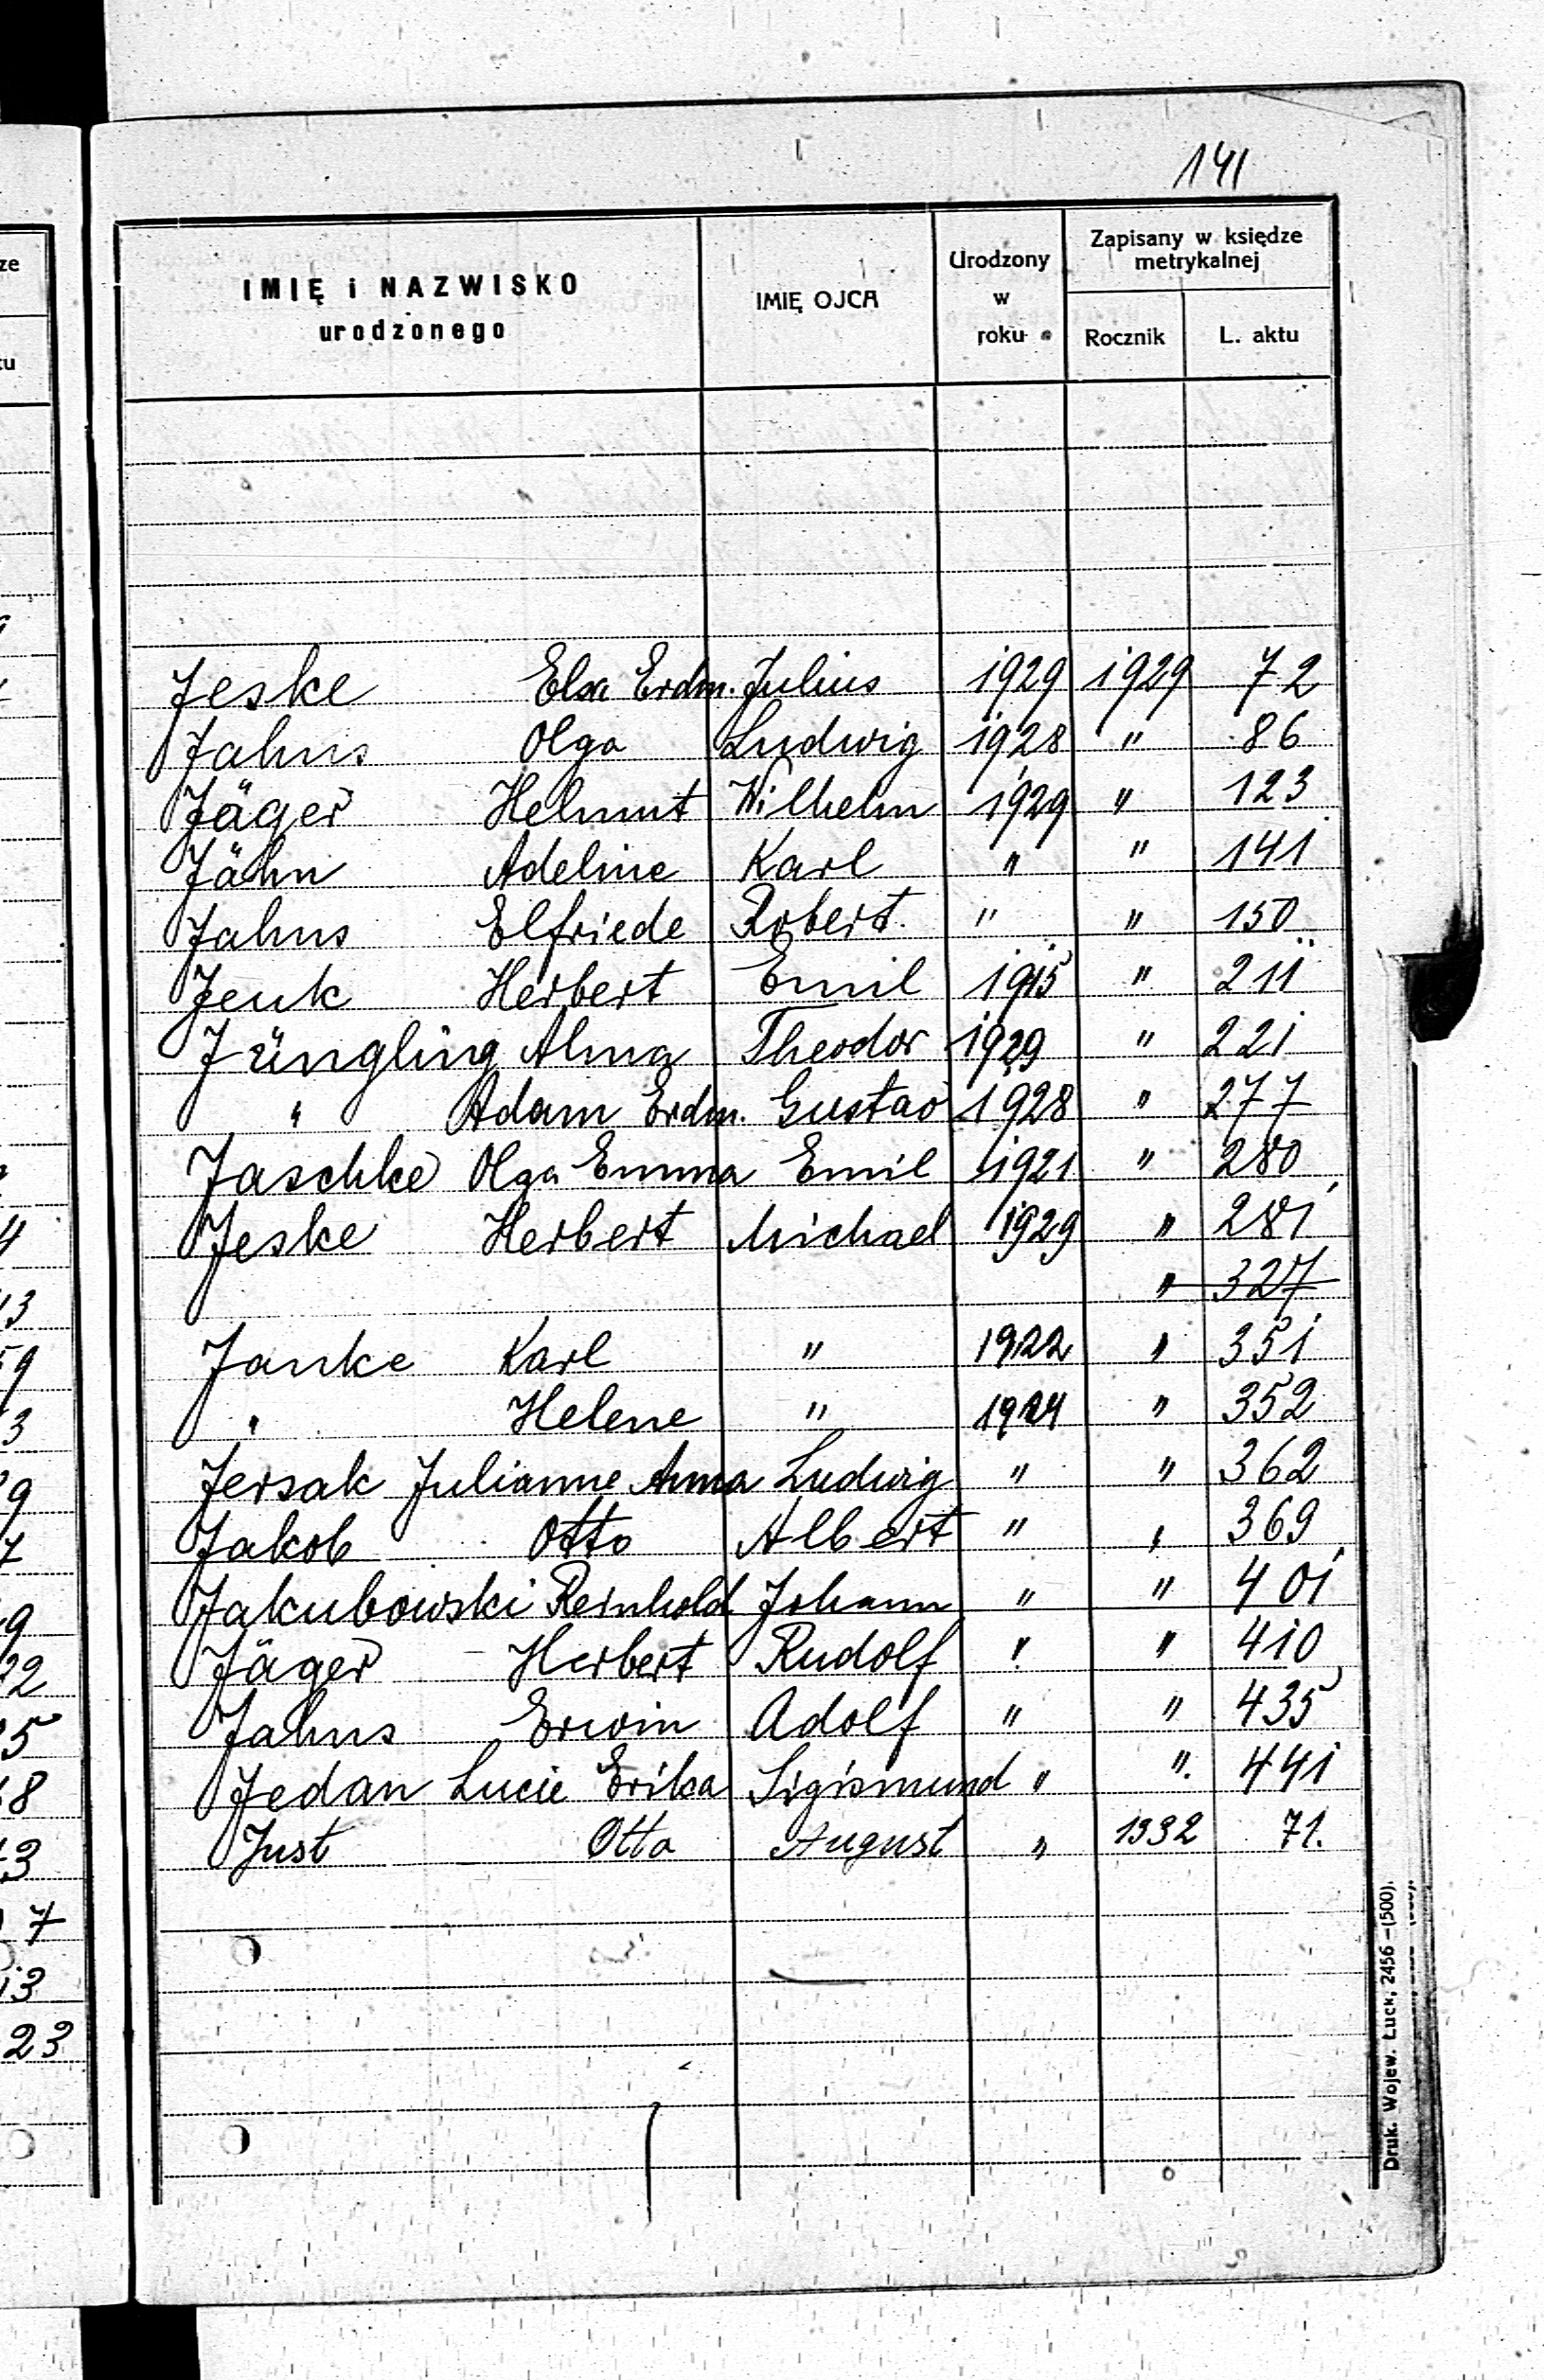 141
IMIĘ i NAZWISKO urodzonego | IMIĘ OJCA | Urodzony w roku | Zapisany w księdze metrykalnej
Rocznik | L. aktu
Jeske Elsa Erdm. Julius 1929 1929 72
Jahns Olga Ludwig 1928 " 86
Jäger Helmut Wilhelm 1929 " 123
Jähn Adeline Karl " " 141
Jahns Elfriede Robert. " " 150
Jeuk Herbert Emil 1915 " 211
Jüngling Alma Theodor 1929 " 221
" Adam Erdm. Gustav 1928 " 277
Jaschke Olga Emma Emil 1921 " 280
Jeske Herbert Michael 1929 " 281
" 327
Janke Karl " 1922 " 351
" Helene " 1924 " 352
Jersak Julianne Anna Ludwig " " 362
Jakob Otto Albert " " 369
Jakubowski Reinhold Johann " " 401
Jäger Herbert Rudolf " " 410
Jahns Erwin Adolf " " 435
Jedan Lucie Erika Sigismund " ". 441
Just Otto August " 1932 71.
Druk. Wojew. Łuck, 2456 —(500).
ze
tu
4
13
59
3
9
7
9
22
5
8
3
7
13
23